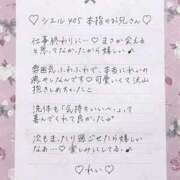 ♡ シエル 405 本指のお兄さん
仕事終わりにー♡ まさか会える
と思ってなかったから嬉しい
雰囲気ふわふわで、本当にわいの
癒やしなんです♡ 可愛いくて沢山
抱きしめちゃたこ
洗体も「気持ちいいへ〜」って
喜んでくれて良かった
次もまったり過ごせたら嬉しい
なあー♡ 楽しみにしてる
♡わい♡